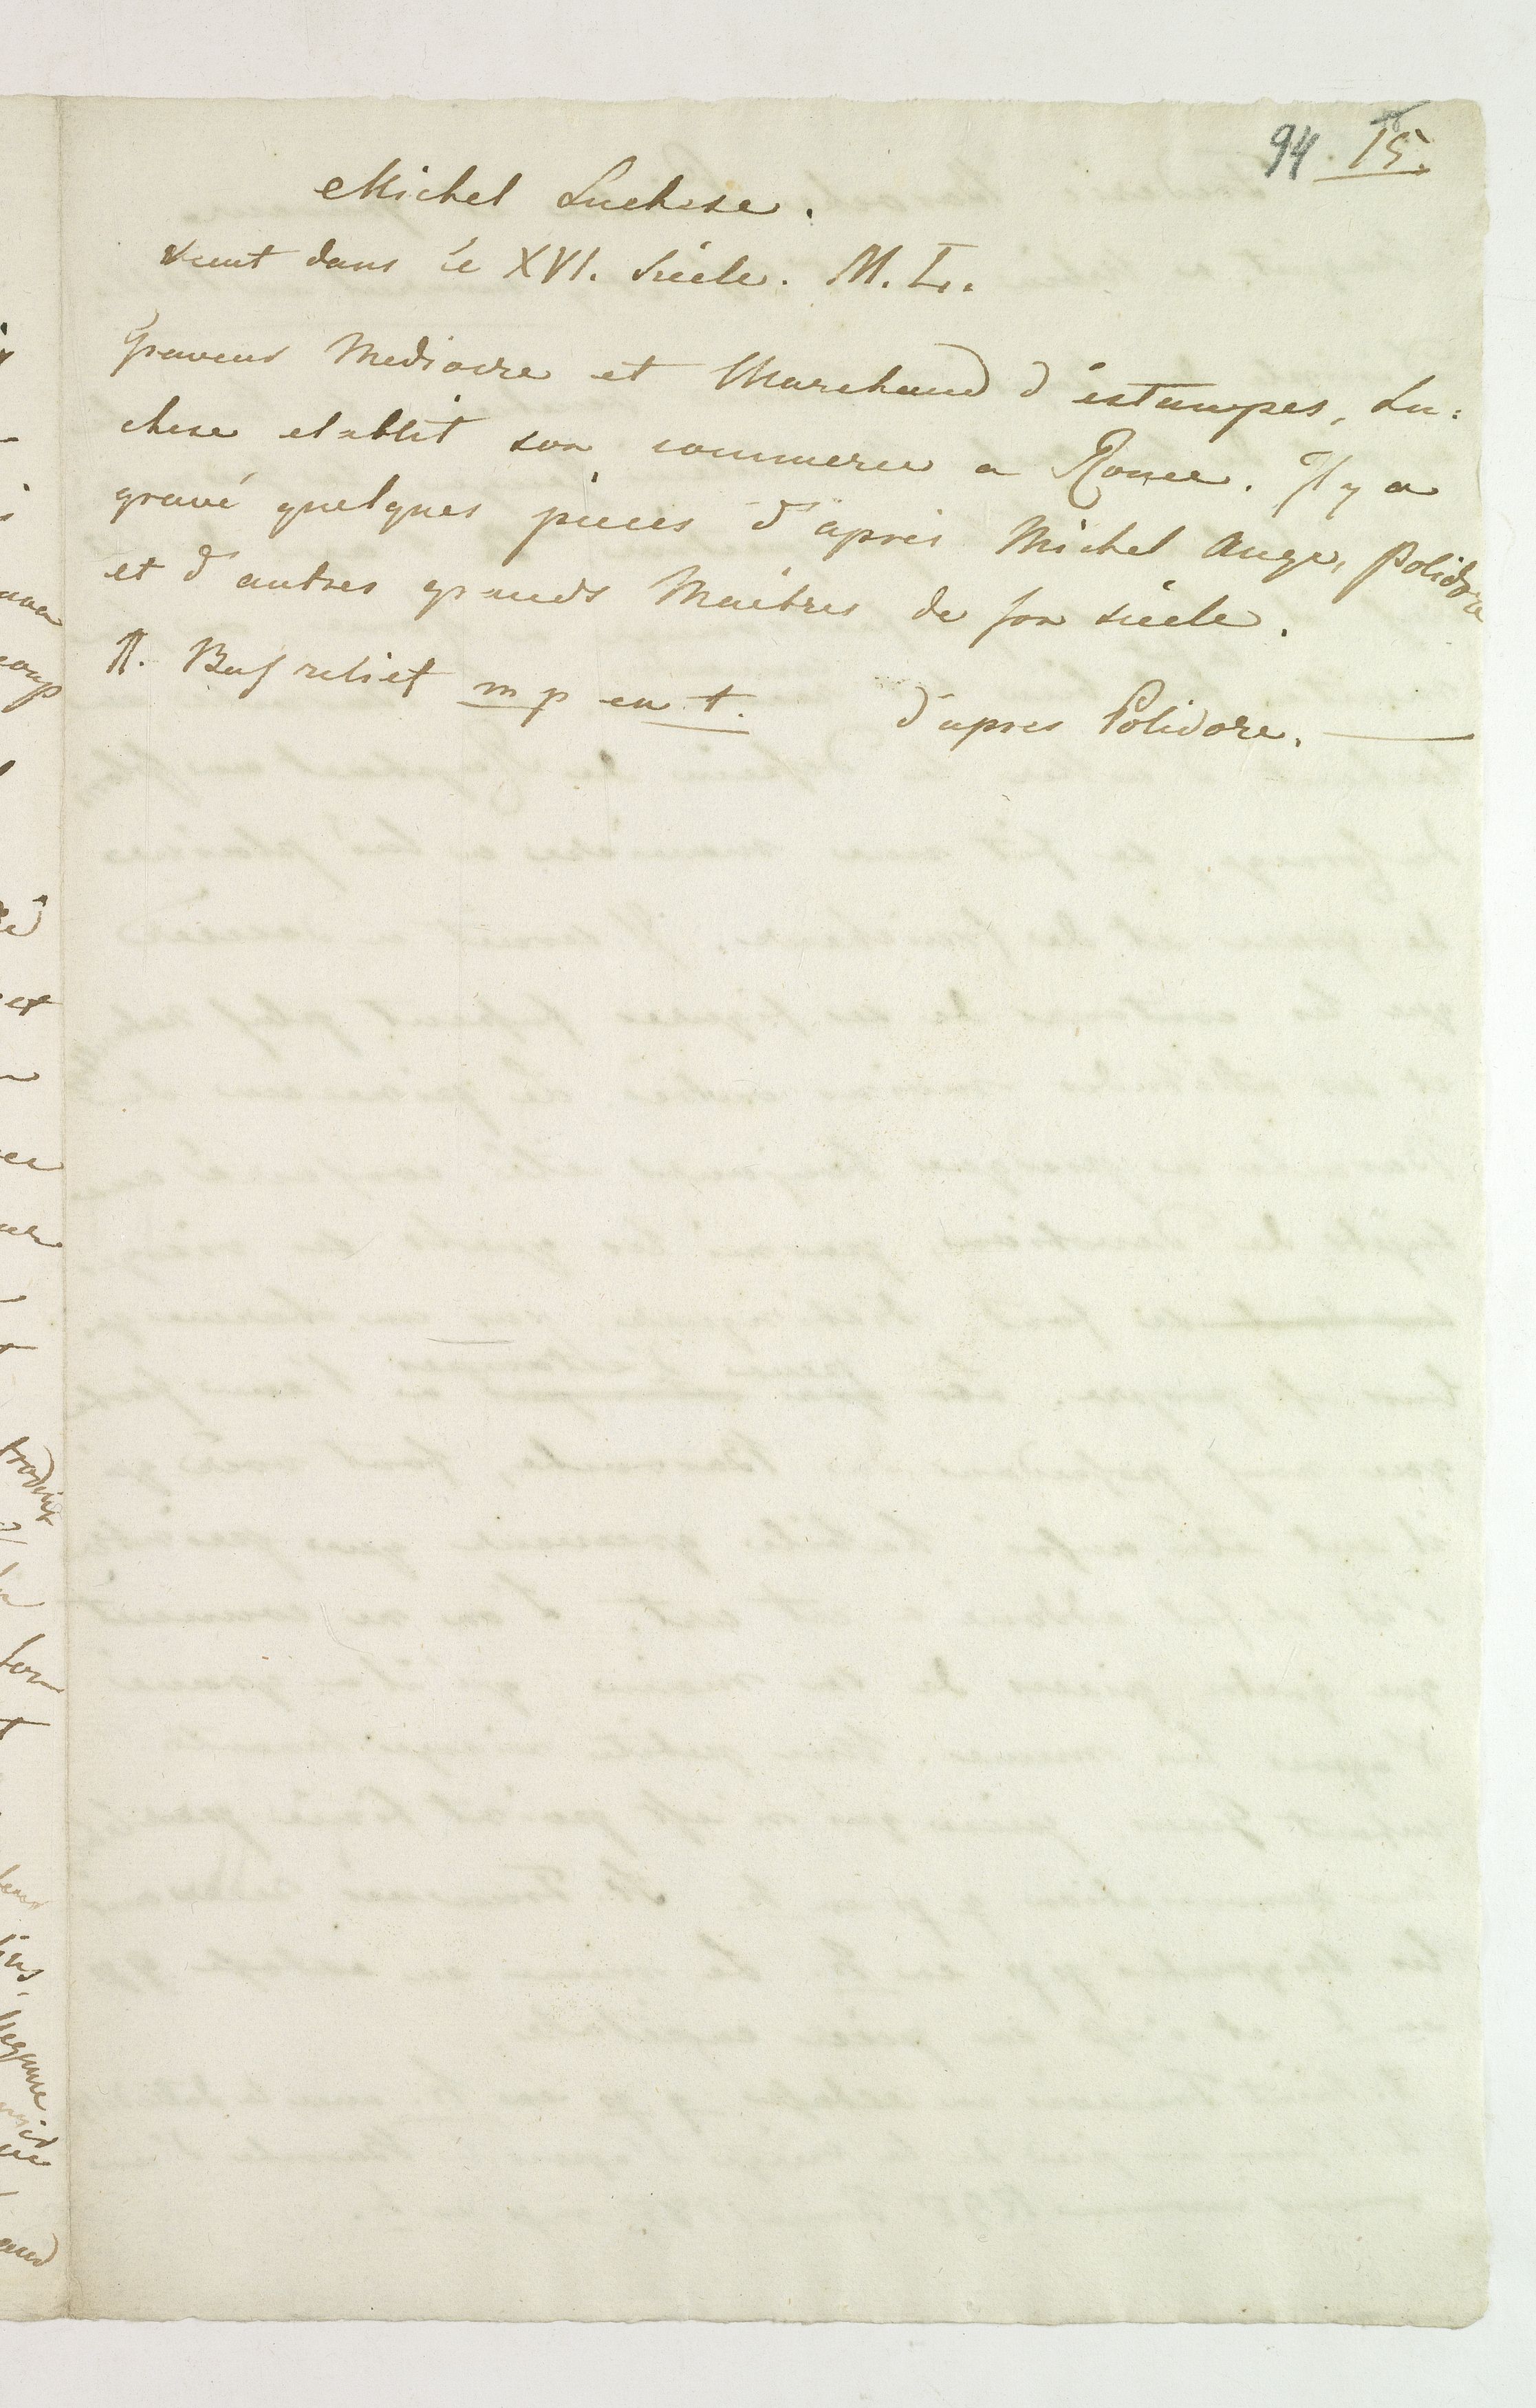 94. 15.
Michel Luchese.
vecut dans le XVI. Siècle. M. L.
Graveur Mediocre et Marchand d'estampes, Lu:
chese etablit son commerce a Rome. Il y a
gravé quelques pieces d'après Michel Ange, Polidore
et d'autres grands Maitres de son siècle.
1. Bas reliet m p en t. d'apres Polidore.